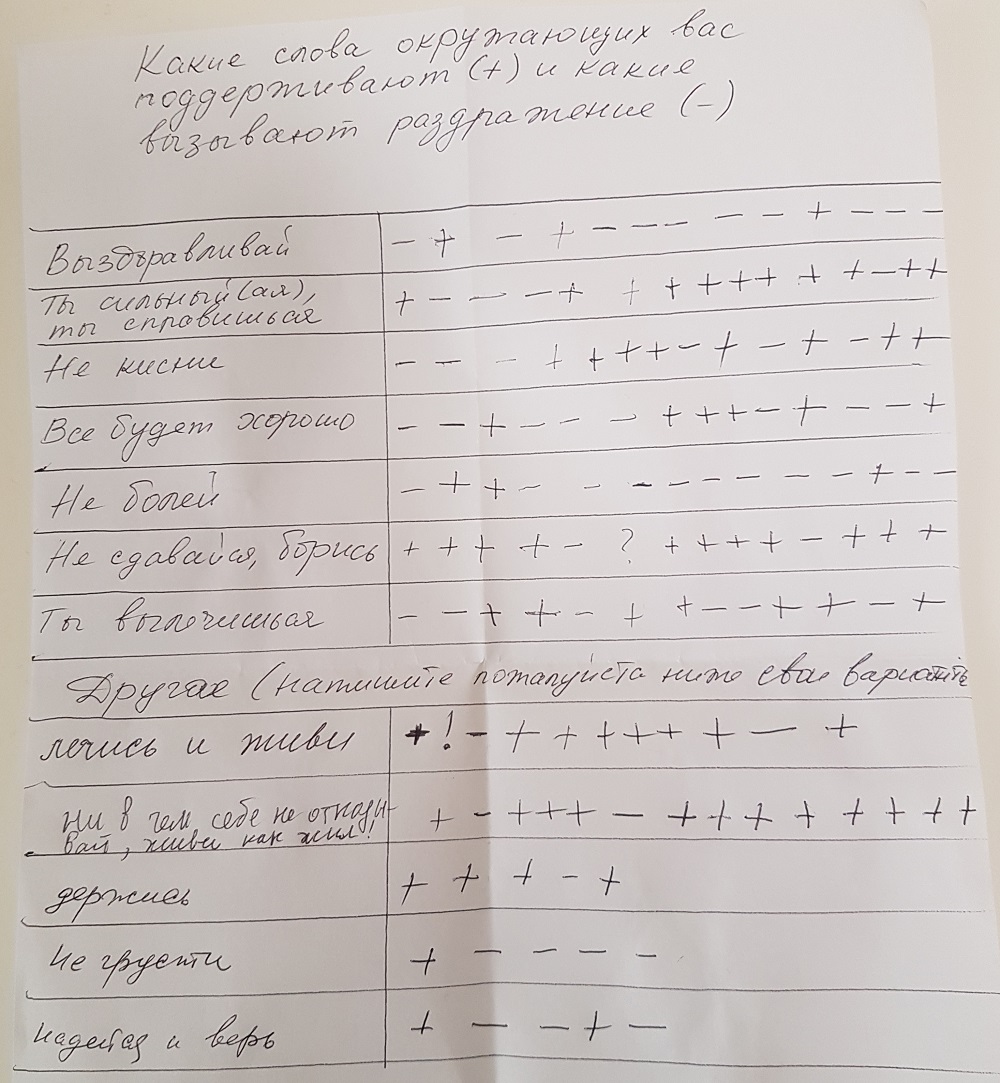 Какие слова окружающих вас
поддерживают (+) и какие
вызывают раздражение (-)
Выздоравливай - + - + - - - - - + - - -
Ты сильный(ая),
ты справишься + - - - + + + + + + + + + - + +
Не кисни - - - + + + + - + - + - + +
Все будет хорошо - - + - - - + + + - + - - +
Не болей - + + - - - - - - - - - + - -
Не сдавайся, борись + + + + - ? + + + + - + + +
Ты вылечишься - - + + - + + - - + + - +
Другах (напишите пожалуйста ниже свои варианты
лечись и живи + ! - + + + + + + - +
ни в чем себе не отказы-
вай, живи как жил! + - + + + - + + + + + + + +
держись + + + - +
Не грусти + - - - -
надейся и верь + - - + -